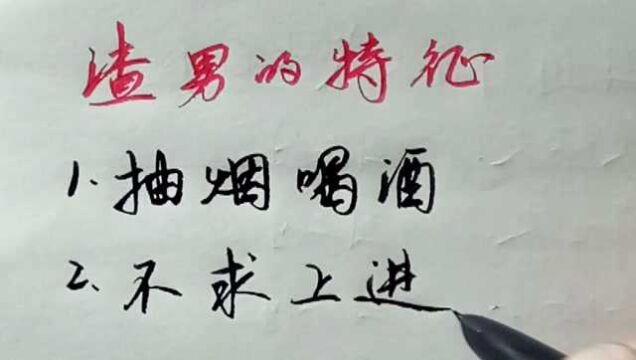 渣男的特征
1.抽烟喝酒
2.不求上进